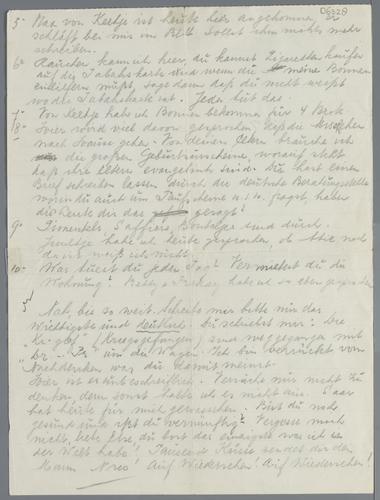 06328
5- Max von Keetje ist heute hier angekommen, er
schläft bei mir im Bett. Sollst ihm nichts mehr
schreiben.
6- Rauchen kann ich hier, du kannst Zigaretten kaufen
auf die Tabakskarte und wenn du meine Bonnen
einliefern mußt, sage dann daß du nicht weißt
wo die Tabakskarte ist. Jeder tut das.
7- Von Keetje hab ich Bonnen bekommen für 4 Brote
8- Hier wird viel davon gesprochen, daß die
nach Hause gehen. Von deinen Eltern brauche ich
die großen Geburtsscheine, worauf steht
daß ihre Eltern evangelisch sind. Du hast einen
Brief schreiben lassen durch die deutsche Beratungsstelle
worin du auch um Taufscheine u.s.w. fragst, haben
die Leute dir das gesagt?
9- sind durch.
habe ich heute gesprochen, ob noch
da ist weiß ich nicht.
10- Was tust du jeden Tag? Vermietest du die
Wohnung? habe ich so eben gesprochen
Nah, bis so weit. Schreibe mir bitte nur das
Wichtigste und deutlich. Du schreibst mir: die
Kr. gef. (Kriegsgefangen) sind weggegangen mit
um die Wagen. Ich bin verrückt vom
Nachdenken was du damit meinst.
Hier ist es unbeschreiblich. Versuche nur nicht zu
denken, denn sonst halte ich es nicht aus.
hat heute für mich gewaschen. Bist du noch
gesund und ißt du vernünftig? Vergesse mich
nicht, liebe Else, du bist das einzigste was ich auf
der Welt habe! Tausend Küsse sendet dir dein
Mann Auf Wiedersehen! Auf Wiedersehen!